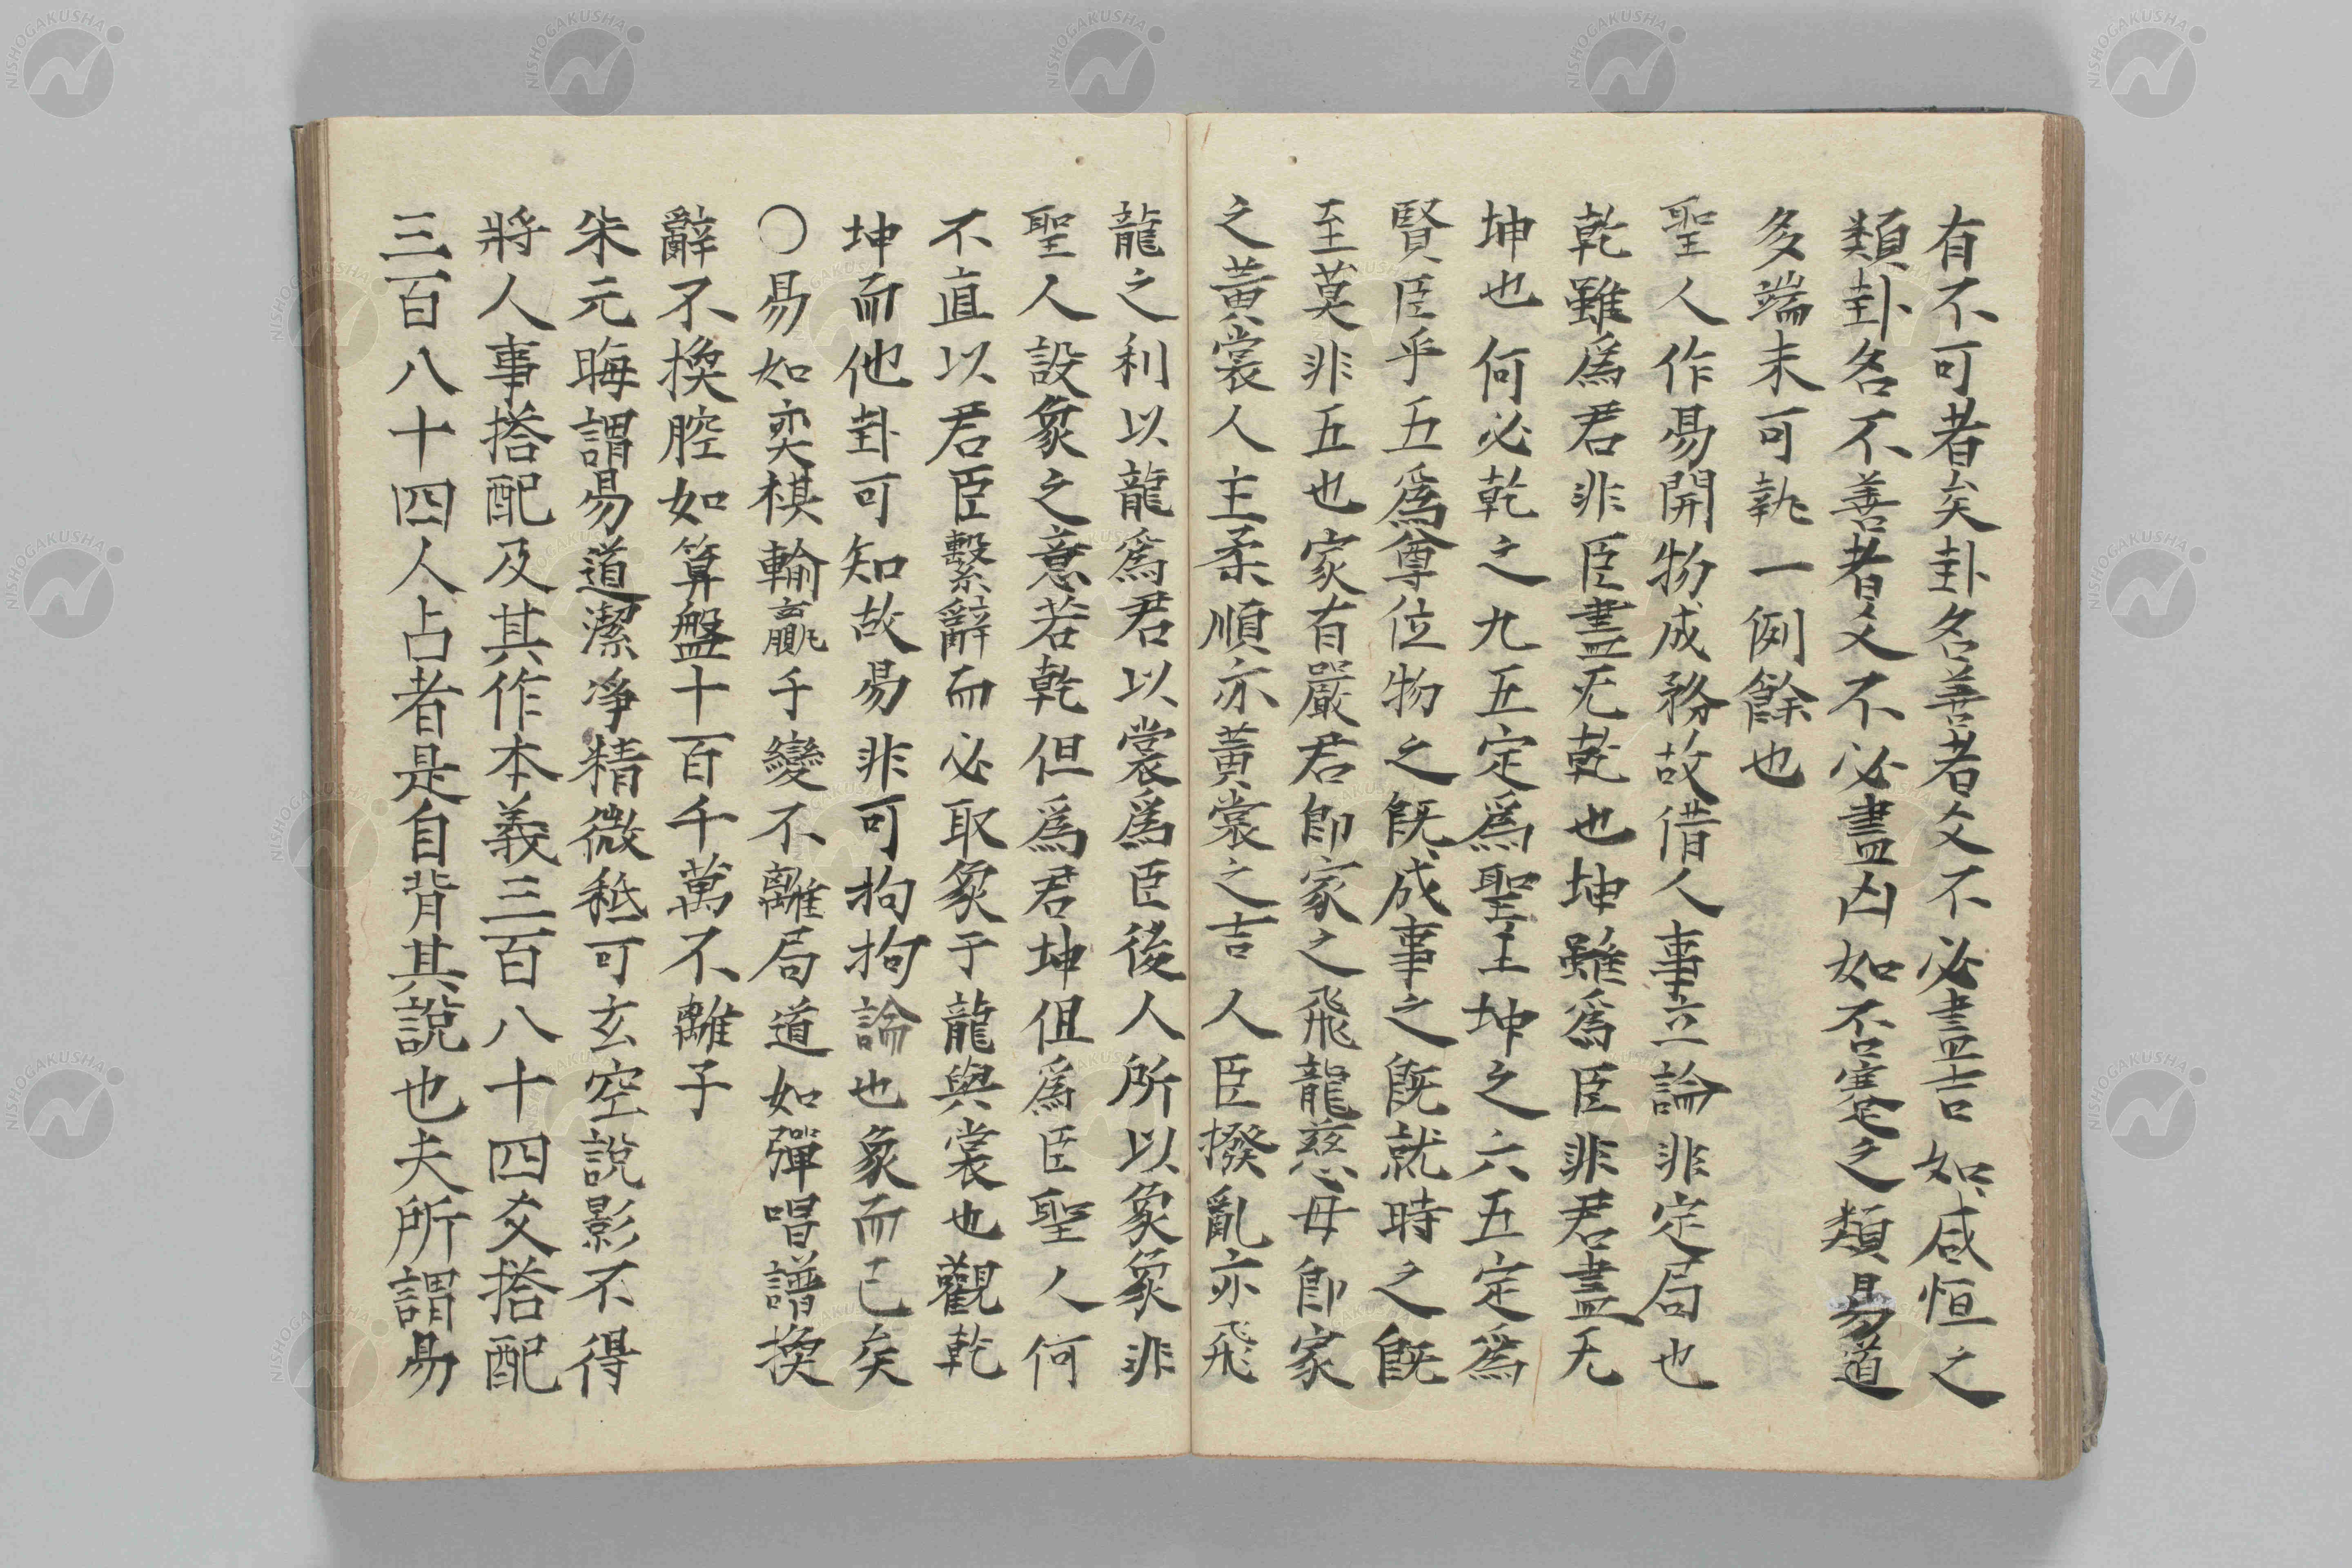 有不可者矣卦名善者爻不必盡吉如咸恒之
類卦名不善者爻不必盡凶如否蹇之類易道
多端未可執一例餘也
聖人作易開物成務故借人事立論非定局也
乾雖爲君非臣盡无乾也坤雖爲臣非君盡无
坤也何必乾之九五定爲聖主坤之六五定爲
賢臣乎五爲尊位物之既成事之既就時之既
至莫非五也家有嚴君即家之飛龍慈母即家
之黃裳人主柔順亦黃裳之吉人臣撥亂亦飛
龍之利以龍爲君以裳爲臣後人所以象象非
聖人設象之意若乾但爲君坤但爲臣聖人何
不直以君臣繫辭而必取象于龍與裳也觀乾
坤而他卦可知故易非可拘拘論也象而已矣
〇易如奕棋輸贏千變不離局道如彈唱譜換
辭不換腔如算盤十百千萬不離子
朱元晦謂易道潔淨精微秪可玄空說影不得
將人事搭配及其作本義三百八十四爻搭配
三百八十四人占者是自背其說也夫所謂易
NISHOGAKUSHA